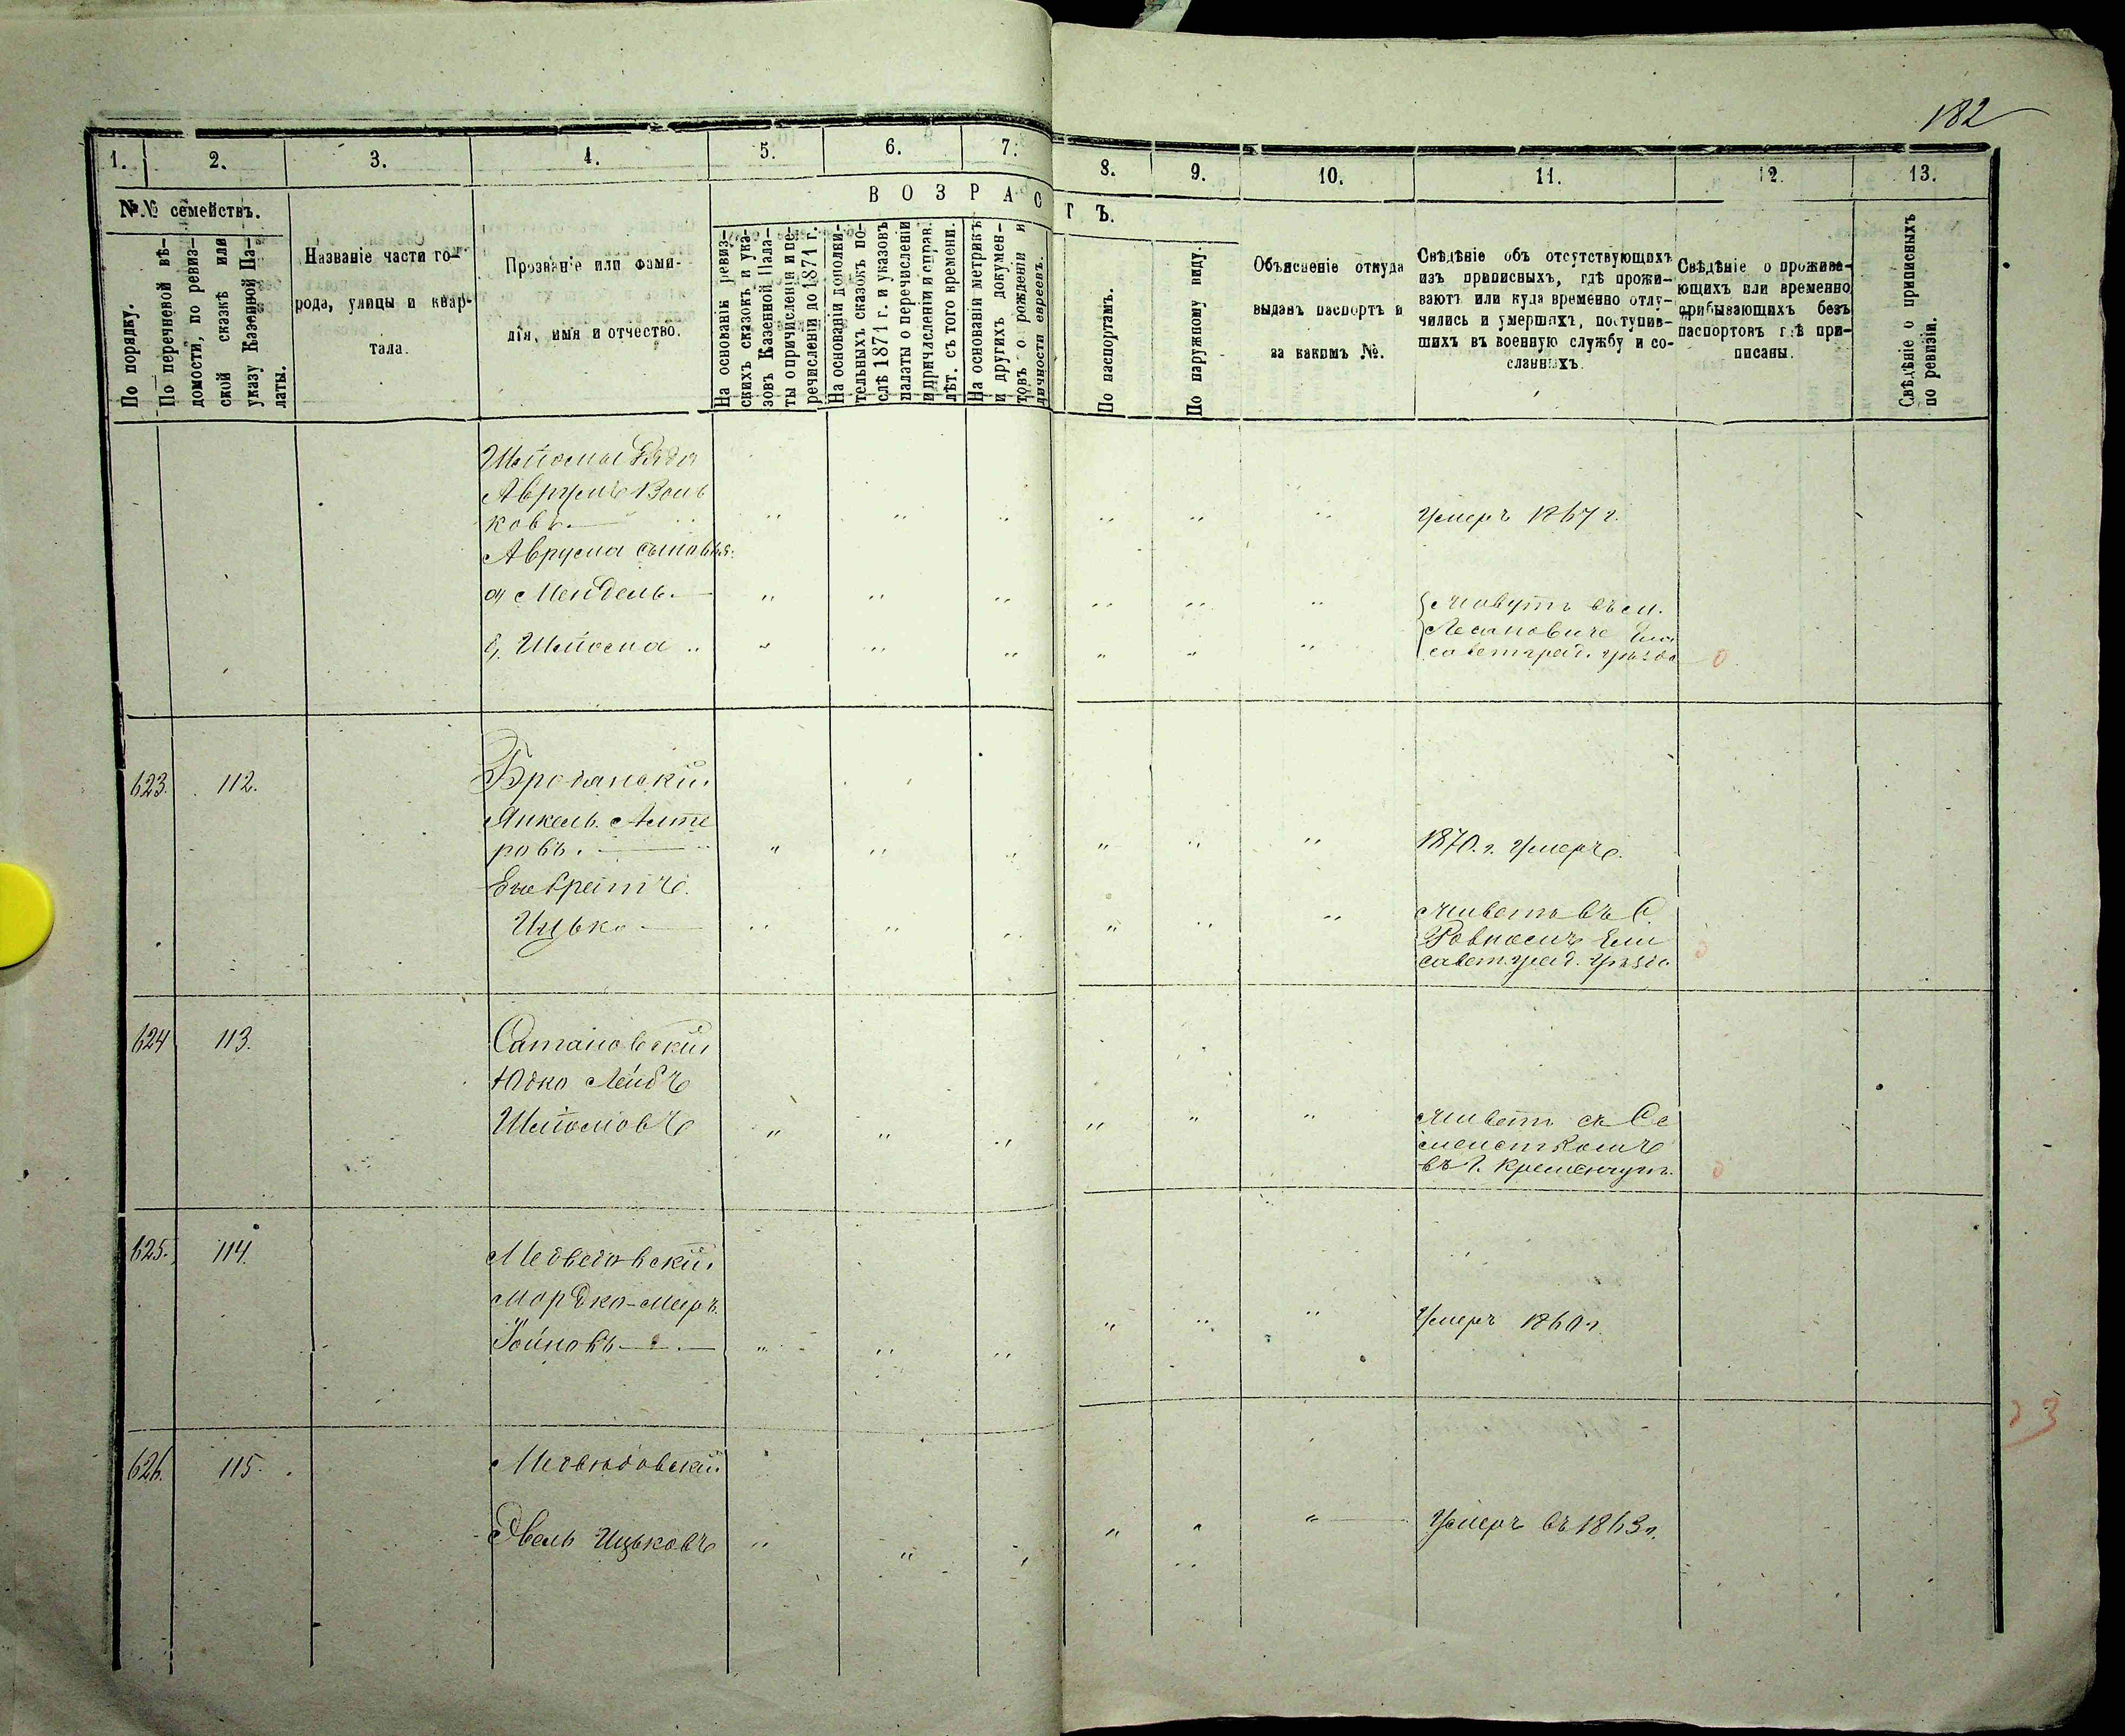 182
1. 2. 3. 4. 5. 6. 7. 8. 9. 10. 11. 12. 13.
№.№ семействъ.
По порядку.
По перечневой вѣ-
домости, по ревиз-
ской сказкѣ или
указу Казенной Па-
латы.
Названіе части го-
рода, улицы и квар-
тала.
Прозваніе или фами-
лія, имя и отчество.
ВОЗРАСТЪ.
На основаніи ревиз-
скихъ сказокъ и ука-
зовъ Казенной Пала-
ты о причисленіи и пе-
речисленіи до 1871 г.
На основаніи дополни-
тельныхъ сказокъ по-
слѣ 1871 г. и указовъ
палаты о перечисленіи
и причисленіи и справ.
лѣт. съ того времени.
На основаніи метрикъ
и другихъ докумен-
товъ о рожденіи и
личности евреевъ.
По паспортамъ.
По наружному виду.
Объясненіе откуда
выданъ паспортъ и
за какимъ №.
Свѣдѣніе объ отсутствующихъ
изъ приписныхъ, гдѣ прожи-
ваютъ или куда временно отлу-
чились и умершихъ, поступив-
шихъ въ военную службу и со-
сланныхъ.
Свѣдѣніе о прожива-
ющихъ или временно
прибывающихъ безъ
паспортовъ гдѣ при-
писаны.
Свѣдѣніе о приписныхъ
по ревизіи.
Шліомы дядя
Аврумъ Воль
ковъ. Умеръ 1867 г.
Аврума сыновья:
а, Мендель. Живутъ въ м.
б, Шліома Ели
саветград. уѣзда
623. 112. Бродянскій
Янкель Алте
ровъ. 1870. г. умеръ.
Его братъ.
Ицько Живетъ въ С.
Ровномъ Ели
саветград. уѣзда
624 113. Сатановскій
Юдко Лейбъ
Шліомовъ Живетъ съ Се
мействомъ
въ г. Кременчугѣ.
625. 114. Медведовскій
Мордко-Меръ
Умеръ 1860 г.
626. 115. Медвѣдовскій
Ицьковъ Умеръ въ 1863 г.
23